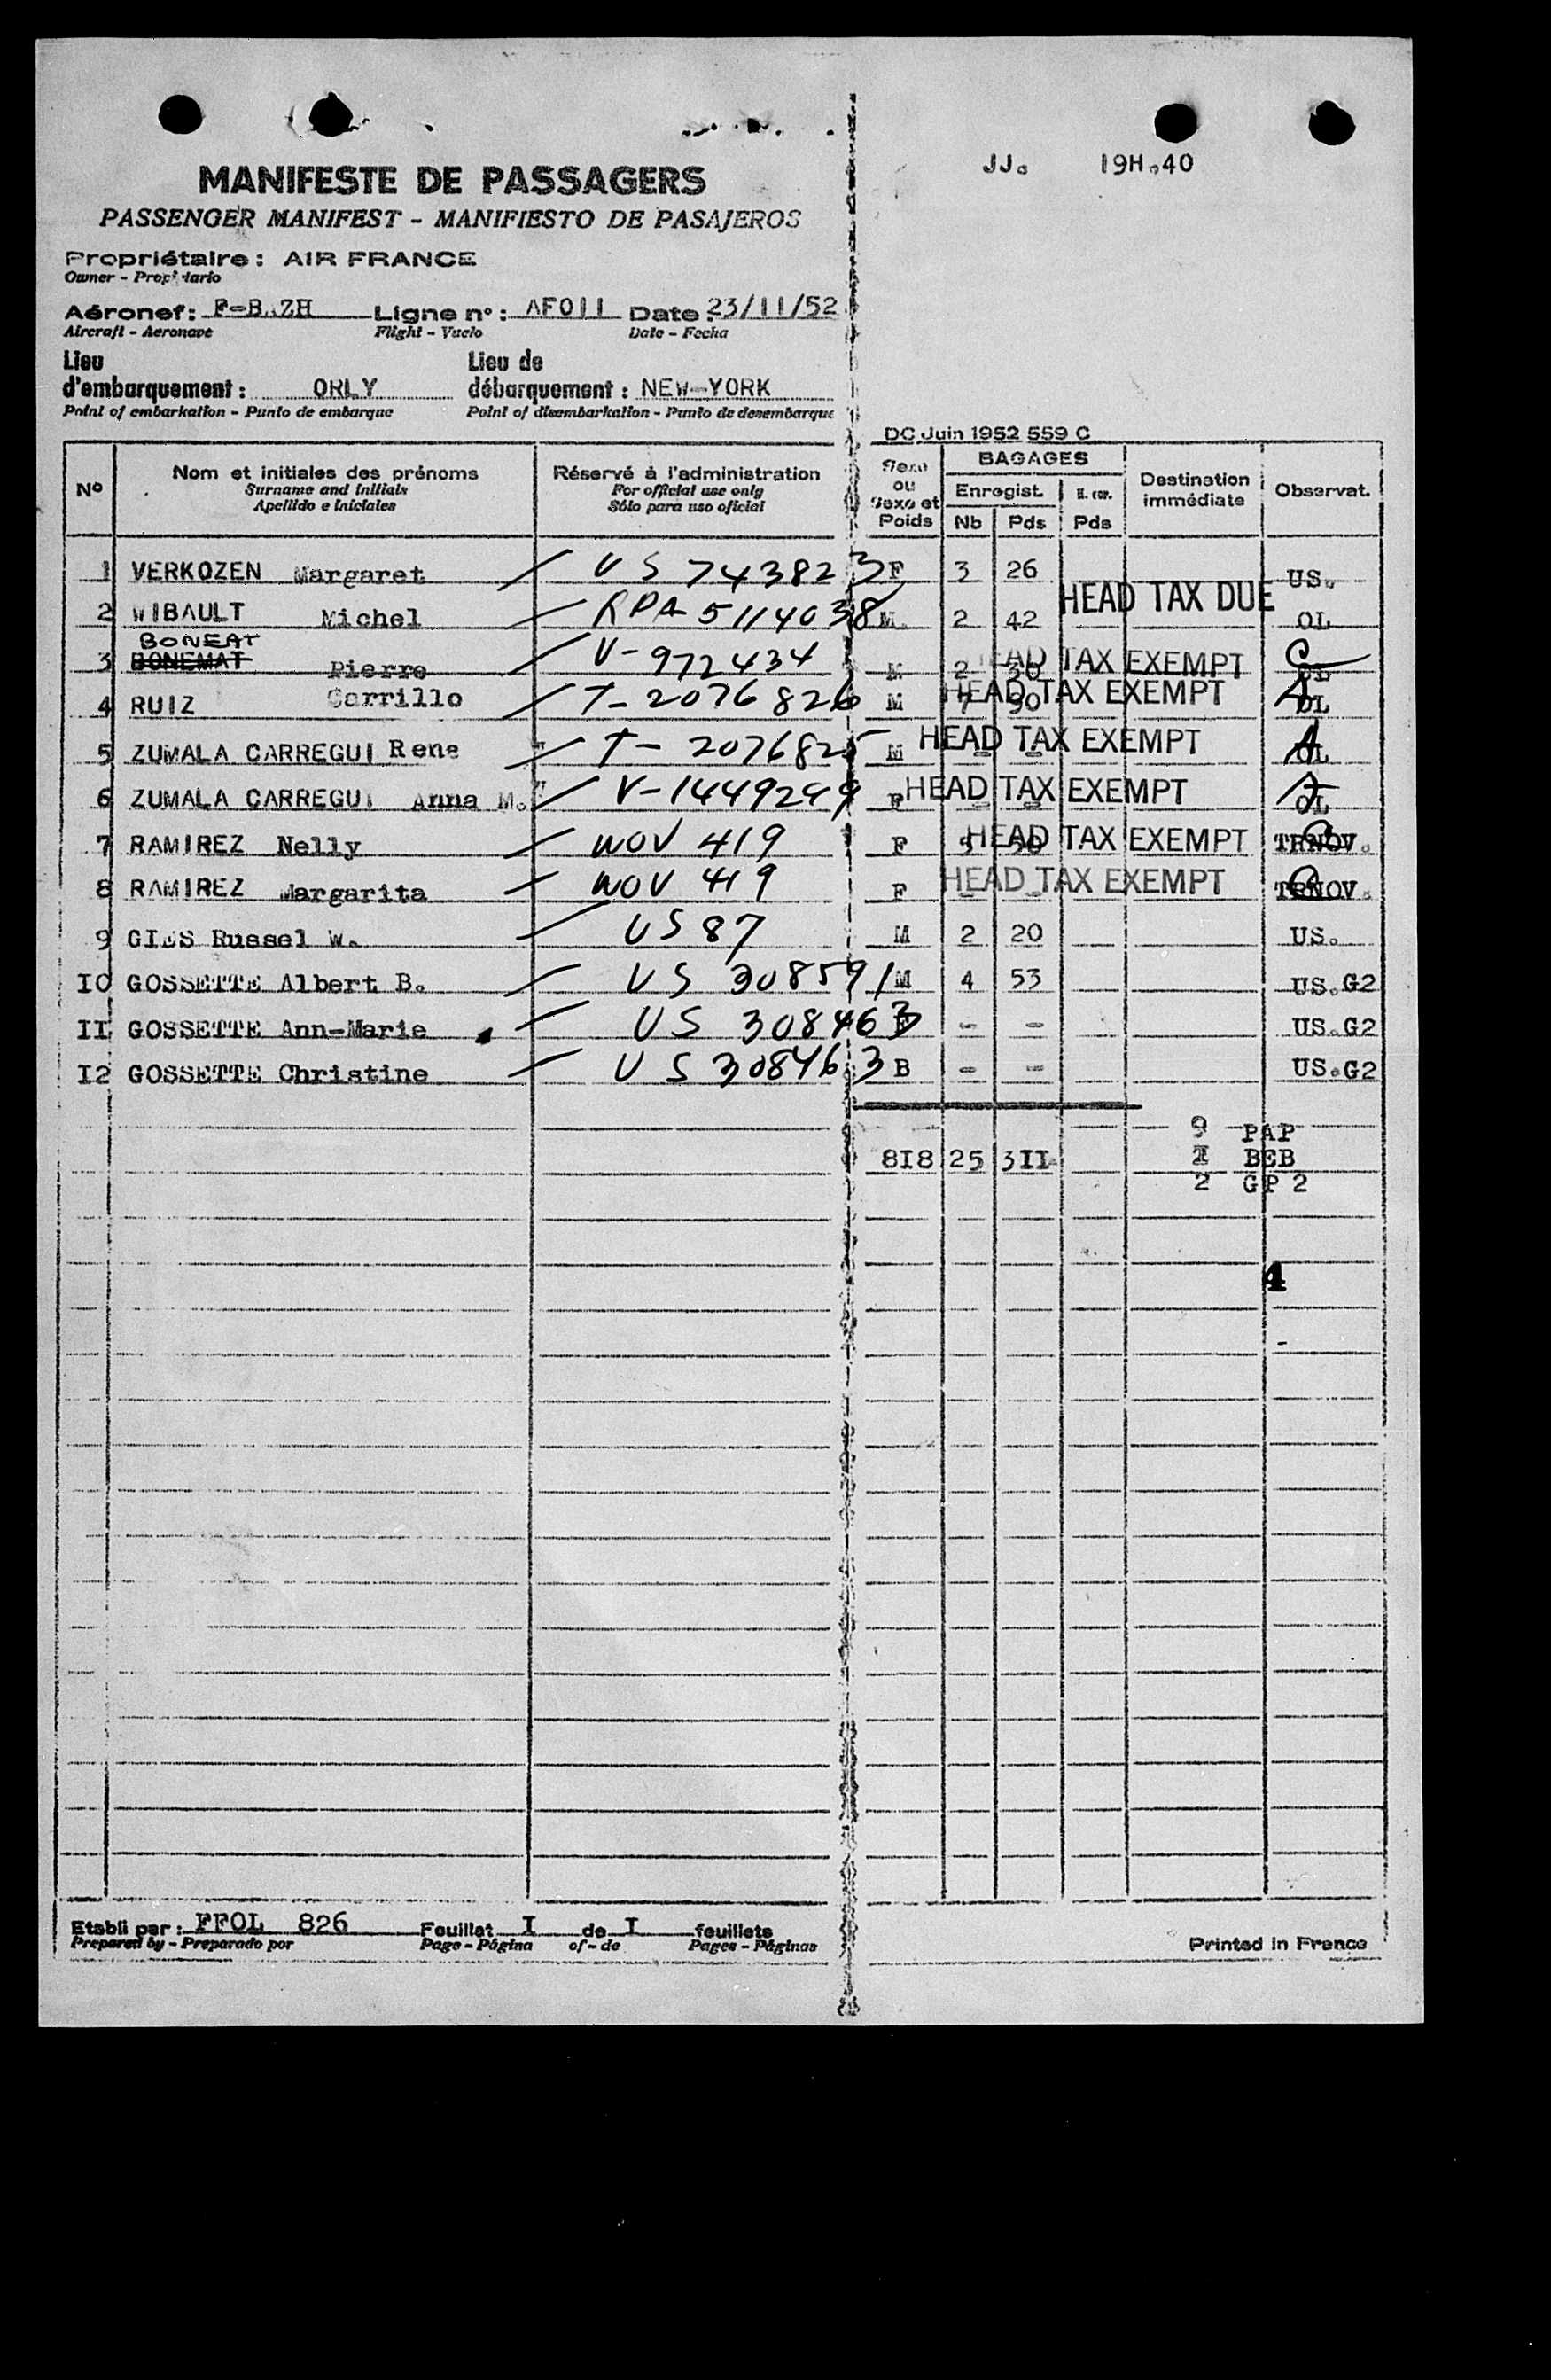 JJ. 19H.40
MANIFESTE DE PASSAGERS
PASSENGER MANIFEST - MANIFIESTO DE PASAJEROS
Propriétaire : AIR FRANCE
Owner - Propietario
Aéronef : Ligne n° : AF011 Date : 23/11/52
Aircraft - Aeronave Flight - Vuelo Date - Fecha
Lieu d'embarquement : ORLY Lieu de débarquement : NEW-YORK
Point of embarkation - Punto de embarque Point of disembarkation - Punto de desembarque
DC Juin 1952 559 C
N° Nom et initiales des prénoms Réservé à l'administration ou Sexe et Poids BAGAGES Destination immédiate Observat.
Surname and initials For official use only Enregist.
Apellido e iniciales Sólo para uso oficial Nb Pds Pds
1 VERKOZEN Margaret US 743823 F 3 26 US.
2 WIBAULT Michel RPA 5114038 M 2 42 HEAD TAX DUE OL
BONEAT
3 BONEMAT Pierre V-972434 M 2 30 HEAD TAX EXEMPT C OL
4 RUIZ Carrillo T-2076826 M 7 90 HEAD TAX EXEMPT OL
5 ZUMALA CARREGUI Rene T-2076825 M - - HEAD TAX EXEMPT OL
6 ZUMALA CARREGUI Anna M. V-1449299 F - - HEAD TAX EXEMPT OL
7 RAMIREZ Nelly WOV 419 F HEAD TAX EXEMPT TRWOV.
8 RAMIREZ Margarita WOV 419 F - - HEAD TAX EXEMPT TRWOV.
9 Russel W. US 87 M 2 20 US.
10 GOSSETTE Albert B. US 308591 M 4 53 US.G2
11 GOSSETTE Ann-Marie US 308463 - - US.G2
12 GOSSETTE Christine US 308463 B - - US.G2
9 PAP
818 25 311 I BEB
2 GP 2
4
Etabli par : FFOL 826 Feuillet I de I feuillets
Prepared by - Preparado por Page - Página of - de Pages - Páginas
Printed in France